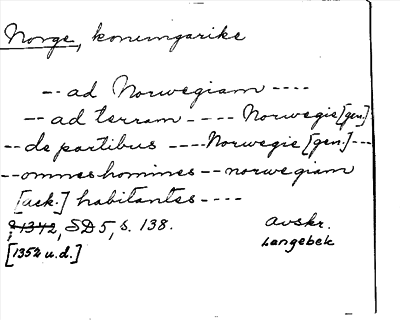 Norge, konungarike
-- ad Norwegiam ----
-- ad terram ---- Norwegie [gen.]
-- de partibus ---- Norwegie [gen.] ---
-- omnes homines -- norwegiam
[ack.] habitantes ----
1342, SD 5, s. 138. avskr.
[1352 u.d.] Langebek